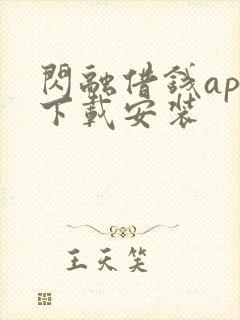 閃融借錢ap
下載安裝
王天笑